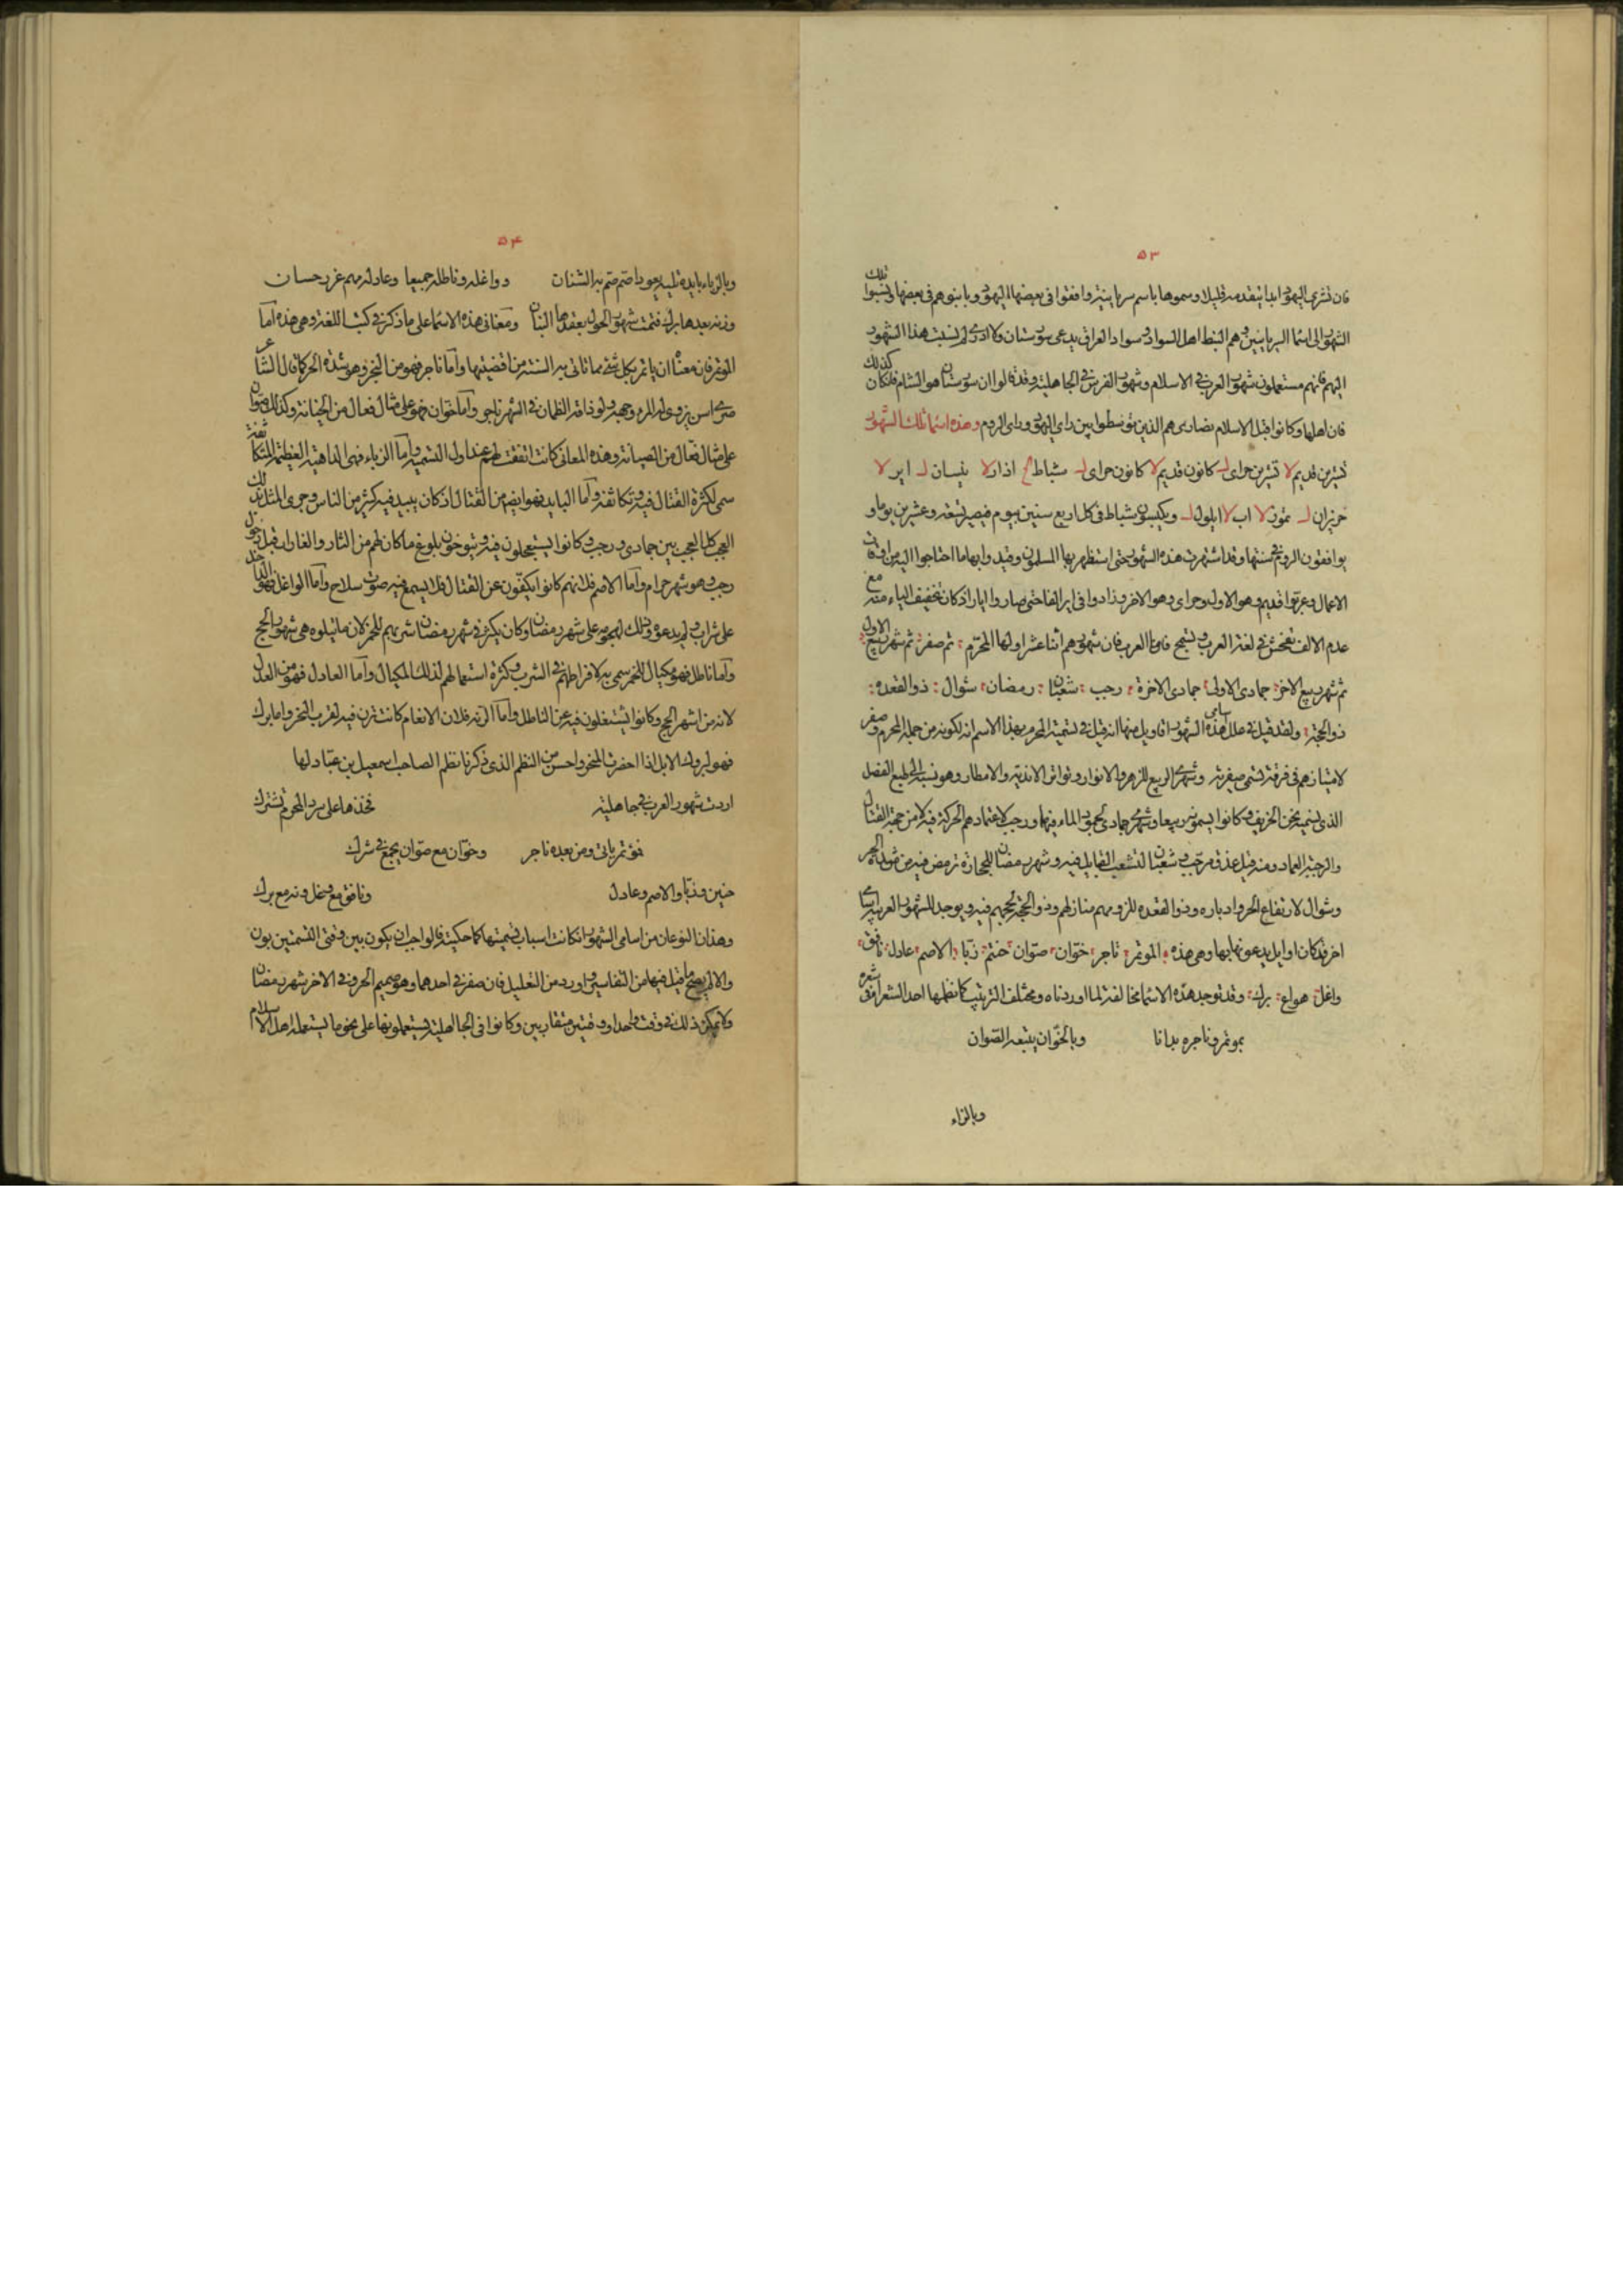 ٥٣
فان تشرى اليهود ابدا يتقدمه قليلا وسموها باسم سريانية وافقوا فى بعضها اليهود وباينوهم فى بعضها ونسبوا تلك
الشهور الى اسماء السريانيين وهم النبط اهل السواد وسواد العراق يدعى سورستان ولا ادرى لم نسبت هذه الشهور
اليهم فانهم مستعملون شهور العرب فى الاسلام وشهور الفرس فى الجاهلية وقد قالوا ان سورستان هو الشام فلئن كان كذلك
فان اهلها وكانوا قبل الاسلام نصارى هم الذين توسطوا بين راى اليهود وراى الروم وهذه اسماء تلك الشهور
تشرين قديم لا تشرين حراى ل كانون قديم لا كانون حراى ل شباط اذار لا نيسان ل اير لا
حزيران ل تموز لا اب لا ايلول ل ويكبسون شباط فى كل اربع سنين بيوم فيصير تسعة وعشرين يوما و
يوافقون الروم فى سنتها وقد اشتهرت هذه الشهور حتى استظهر بها المسلمون وقيدوا بها ما احتاجوا اليه من اوقات
الاعمال وعربوا قديم وهو الاول وحراى وهو الاخر وزادوا فى اير الفا حتى صار وا ايار اذ كان تخفيف الياء منه مع
عدم الالف تفحش فى لغة العرب وتسمج فاما العرب فان شهورهم اثنا عشر اولها المحرم ثم صفر ثم شهر ربيع الاول
ثم شهر ربيع الاخر جمادى الاولى جمادى الاخرة رجب شعبان رمضان شوال ذو القعده
ذو الحجة ولقد قيل فى علل اسامى هذه الشهور اقاويل منها انه قيل فى تسمية المحرم بهذا الاسم انه لكونه من جملة المحرم وصفر
لامتيازهم فى فرقة تسمى صفرية وشهرى الربيع للزهر والانوار وتواتر الاندية والامطار وهو نسبة الى طبع الفصل
الذى نسميه نحن الخريف وكانوا يسمونه ربيعا وشهرى جمادى لجمود الماء فيها ورجب لاعتمادهم الحركة فيه لا من جهة القتال
والرجبة العماد ومنه قيل عذق مرجب وشعبان لتشعب القبايل فيه وشهر رمضان للحجارة ترمض فيه من شدة الحر
وشوال لارتفاع الحر وادباره وذو القعده للزومهم منازلهم وذو الحجة لحجهم فيه ويوجد للشهور العربية اسامى
اخر قد كان اوايلهم يدعونها بها وهى هذه المؤتمر ناجر خوان صوان حنتم زبا الاصم عادل نافق
واغل هواع برك وقد توجد هذه الاسماء مخالفة لما اوردناه ومختلف الترتيب كما نظمها احد الشعراء فى شعره
بمؤتمر وناجره بدانا وبالخوان يتبعه الصوان
وبالزباء
٥٤
وبالزباء بايدة تليه يعود اصم صم به الشنان وواغله وناطله جميعا وعادله مهم غرر حسان
ورنه بعدها برك فتمت شهور الحول يعقدها البنان ومعانى هذه الاسماء على ما ذكر فى كتب اللغة وهى هذه اما
المؤتمر فان معناه ان ياتمر بكل شئ مما تاتى به السنة من اقضيتها واما ناجر فهو من النجر وهو شدة الحر كما قال الشاعر
صرى اسن يزوى له المرء وجهه ولو ذاقه الظمان فى شهر ناجر واما خوان فهو على مثال فعال من الخيانة وكذلك صوان
على مثال فعال من الصيانة وهذه المعانى كانت اتفقت لهم عند اول التسمية واما الزباء فهى الداهية العظيمة المتكاثفة
سمى لكثرة القتال فيه وتكاثفه واما البايد فهو ايضا من القتال اذ كان يبيد فيه كثير من الناس وجرى المثل بذلك
العجب كل العجب بين جمادى ورجب وكانوا يستعجلون فيه ويتوخون بلوغ ما كان لهم من الثار والغارات قبل دخول
رجب وهو شهر حرام واما الاصم فلانهم كانوا يكفون عن القتال فلا يسمع فيه صوت سلاح واما الواغل فهو الداخل
على شراب ولم يدعوه وذلك لهجومه على شهر رمضان وكان يكثر فى شهر رمضان شربهم للخمر لان ما يتلوه هى شهور الحج
واما ناطل فهو مكيال للخمر سمى به لافراطهم فى الشرب وكثرة استعمالهم لذلك المكيال واما العادل فهو من العدل
لانه من اشهر الحج وكانوا يشتغلون فيه عن الناطل واما الرنه فلان الانعام كانت ترن فيه لقرب النحر واما برك
فهو لبروك الابل اذا احضرت المنحر واحسن من النظم الذى ذكرنا نظم الصاحب اسمعيل بن عباد لها
اردت شهور العرب فى جاهلية فخذها على سرد المحرم تشترك
فمؤتمر ياتى ومن بعده ناجر وخوان مع صوان يجمع فى شرك
حنين وزبا والاصم وعادل ونافق مع وغل ورنه مع برك
وهذان النوعان من اسامى الشهور ان كانت اسباب تسميتها كما حكيته فالواجب ان يكون بين وقتى التسميتين بون
والا لم يصح ما قيل فيها من التفاسير واورد من التعليل فان صفر فى احدهما وهو صميم الحر وفى الاخر شهر رمضان
ولا يمكن ذلك فى وقت واحد او وقتين متقاربين وكانوا فى الجاهلية يستعملونها على نحو ما يستعمله اهل الاسلام